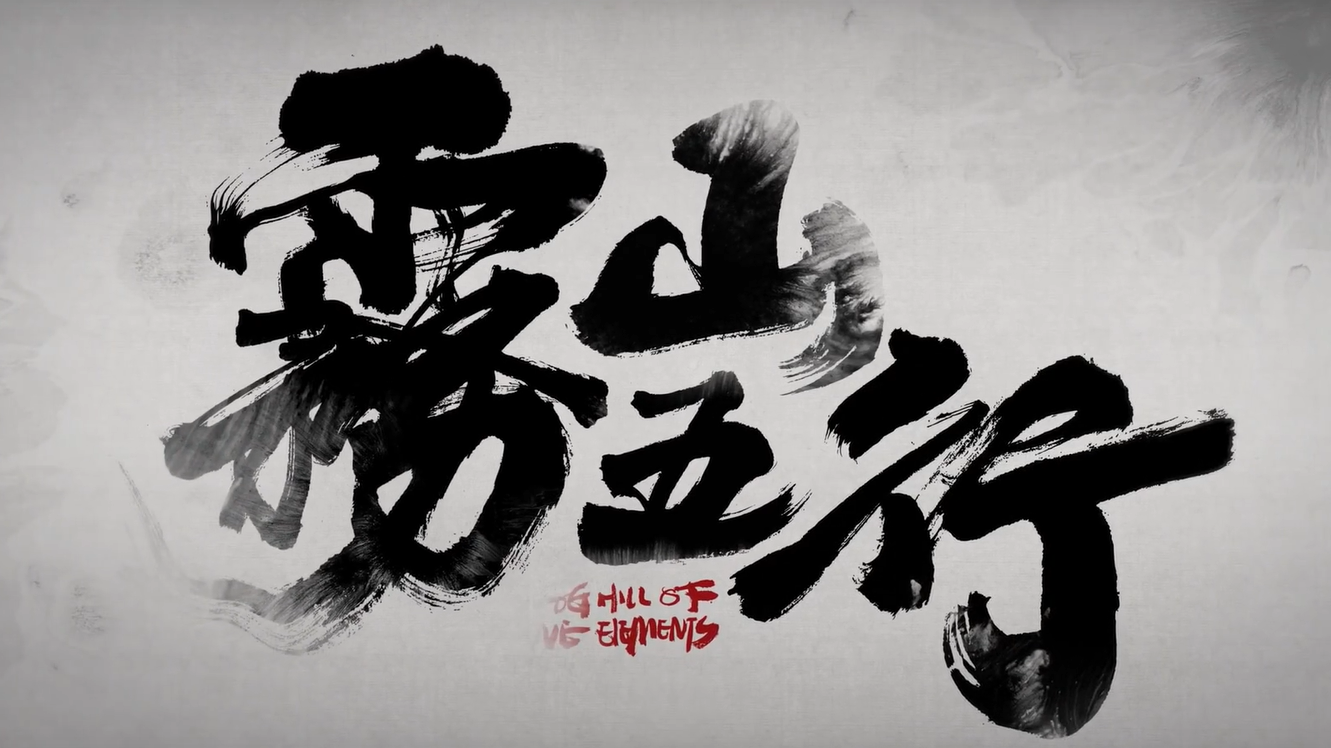 霧山五行
OG HILL OF
VE ELEMENTS